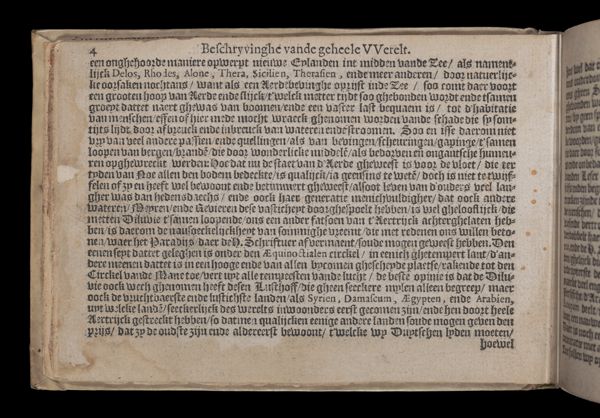 4 Beschryvinghe vande geheele VVerelt.
een onghehoorde maniere opwerpt nieuwe Eylanden int midden vande Zee / als nament-
lijck Delos, Rhodes, Alone, Thera, Sicilien, Therasien, ende meer anderen / door natuerlijc-
ke oorsaken nochtans / want als een Aerdtbevinghe oprijst inde Zee / soo comt daer voort
een grooten hoop van Aerde ende slijck / t'welck metter tijdt soo ghebonden wordt ende t'samen
groeyt dattet naer t ghewas van boomen / ende een vaster last bequaem is / tot d'habitatie
van menschen / effen of hier mede mocht wraeck ghenomen worden vande schade die sy som-
tijts lijdt door afbreuck ende inbreuck van wateren ende stroomen. Soo en isse daerom niet
vry van veel andere passien ende quellingen / als van bevingen / scheuringen / gapinge / t'samen
loopen van bergen / brandē die door wonderlicke middelē / als de boorden en
ren opghewreckt werden: Hoe dat nu de staet van d'Aerde gheweest is voor de vloet / die ter
tyden van Noe allen den bodem bedeckte / is qualijck / ja geensins te wetē / doch is niet te twijf-
felen of zy en heeft wel bewoont ende betimmert gheweest / alsoot leven van d'ouders veel lan-
gher was dan hedensdaechs / ende oock haer generatie menichvuldigher / dat oock andere
wateren / Meyren / ende Revieren dese vasticheyt doorghespoelt hebben / is wel ghelooflijck / die
metten Diluvie t'samen loopende / ons een ander fatsoen van t'Aertrijck achterghelaten heb-
ben / is daerom de nauseeckelijckheyt van sommighe vreemt / die met redenen ons willen beto-
nen waer het Paradijs / daer de H. Schriftuer af vermaent / soude mogen geweest hebben. Den
eenen sept dattet geleghen is onder den Æquinoctialen circkel / in eenich ghetempert landt / d'an-
dere meenen dattet is in een hooge ende van allen bycomen ghescheyde plaetse / rakende tot den
Circkel vande Mane toe / verr upt alle tempeesten vande lucht / de beste opinie is dat de Dilu-
vie oock wech ghenomen heeft desen Lusthoff / die gheen seeckere mylen alleen begreep / maer
oock de vruchtbaerste ende lustichste landen / als Syrien, Damascum, Ægypten, ende Arabien,
upt welcke landē / seeckerlijck des werelts inwoonders eerst gecomen zijn / ende hen doort heele
Aertrijck gestreckt hebben / so datmen qualijcken eenige andere landen soude mogen geven den
prijs / dat zy de oudste zijn ende aldereerst bewoont / t'welcke wy Duytschen lyden moeten /
hoewel